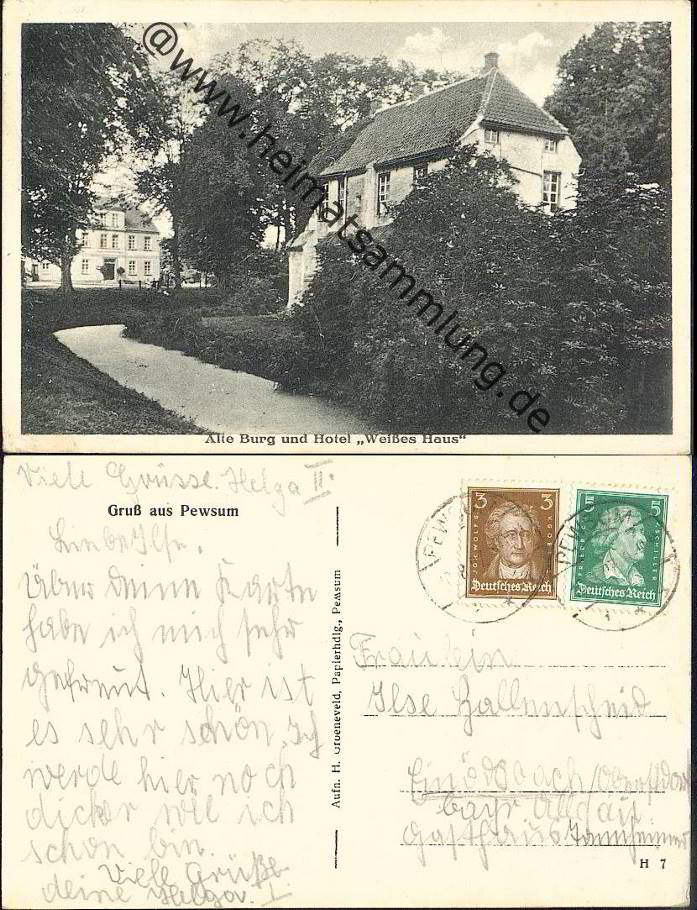 @www.heimatsammlung.de
Alte Burg und Hotel „Weißes Haus"
Viele Grüsse. Helga II.
Gruß aus Pewsum
Liebe Ilse.
Über deine Karte
habe ich mich sehr
gefreut. Hier ist
es sehr schön. Ich
werde hier noch
dicker wie ich
schon bin.
Viele Grüße
deine Helga. I
Aufn. H. Groeneveld, Papierhdlg., Pewsum
3 3
Deutsches Reich
5 5
SCHILLER
Deutsches Reich
PEWSUM
PEWSUM
Fräulein
Ilse Hallenscheid
Einödsbach/Oberstdorf
bayr
Gasthaus Tannheimer
H 7